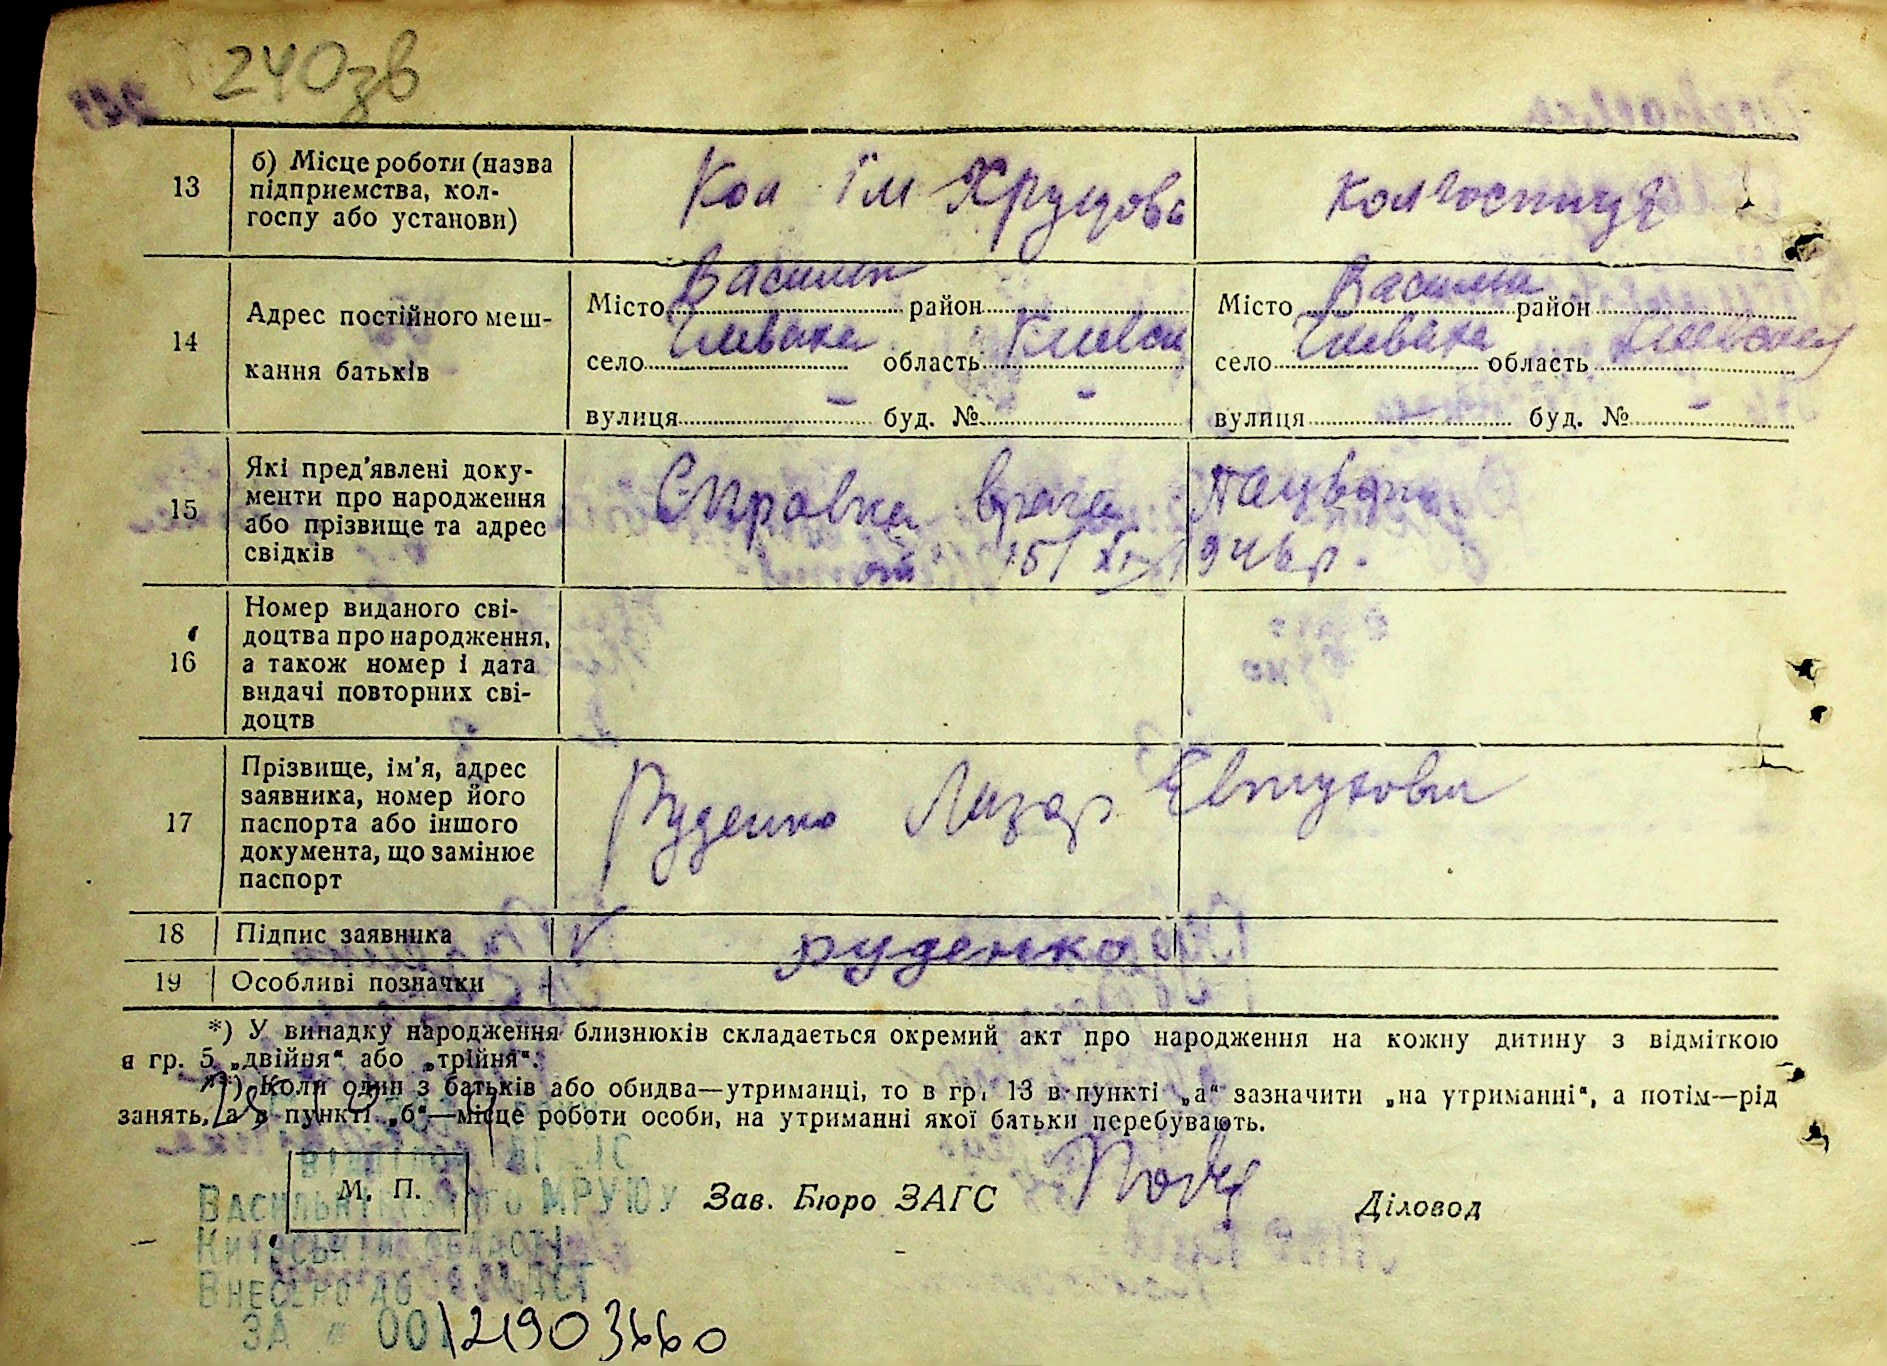 240зв
13
б) Місце роботи (назва
підприємства, кол-
госпу або установи)
Кол ім Хрущова
колгоспниця
14
Адрес постійного меш-
кання батьків
Місто Васильк район
село область Киевск
вулиця - буд. № -
Місто Васильк район
село область Киевская
вулиця - буд. № -
15
Які пред'явлені доку-
менти про народження
або прізвище та адрес
свідків
Справка врача
от 15/ 1946 р.
16
Номер виданого сві-
доцтва про народження,
а також номер і дата
видачі повторних сві-
доцтв
17
Прізвище, ім'я, адрес
заявника, номер його
паспорта або іншого
документа, що замінює
паспорт
Руденко Лазар Евтухович
18
Підпис заявника
V руденко
19
Особливі позначки
*) У випадку народження близнюків складається окремий акт про народження на кожну дитину з відміткою
в гр. 5 „двійня“ або „трійня“.
**) Коли один з батьків або обидва—утриманці, то в гр. 13 в пункті „а“ зазначити „на утриманні“, а потім—рід
занять, а в пункті „б“—місце роботи особи, на утриманні якої батьки перебувають.
М. П.
Васильківського МРУЮУ
Зав. Бюро ЗАГС
Діловод
Київській області
Внесено до
ЗА № 00121903660